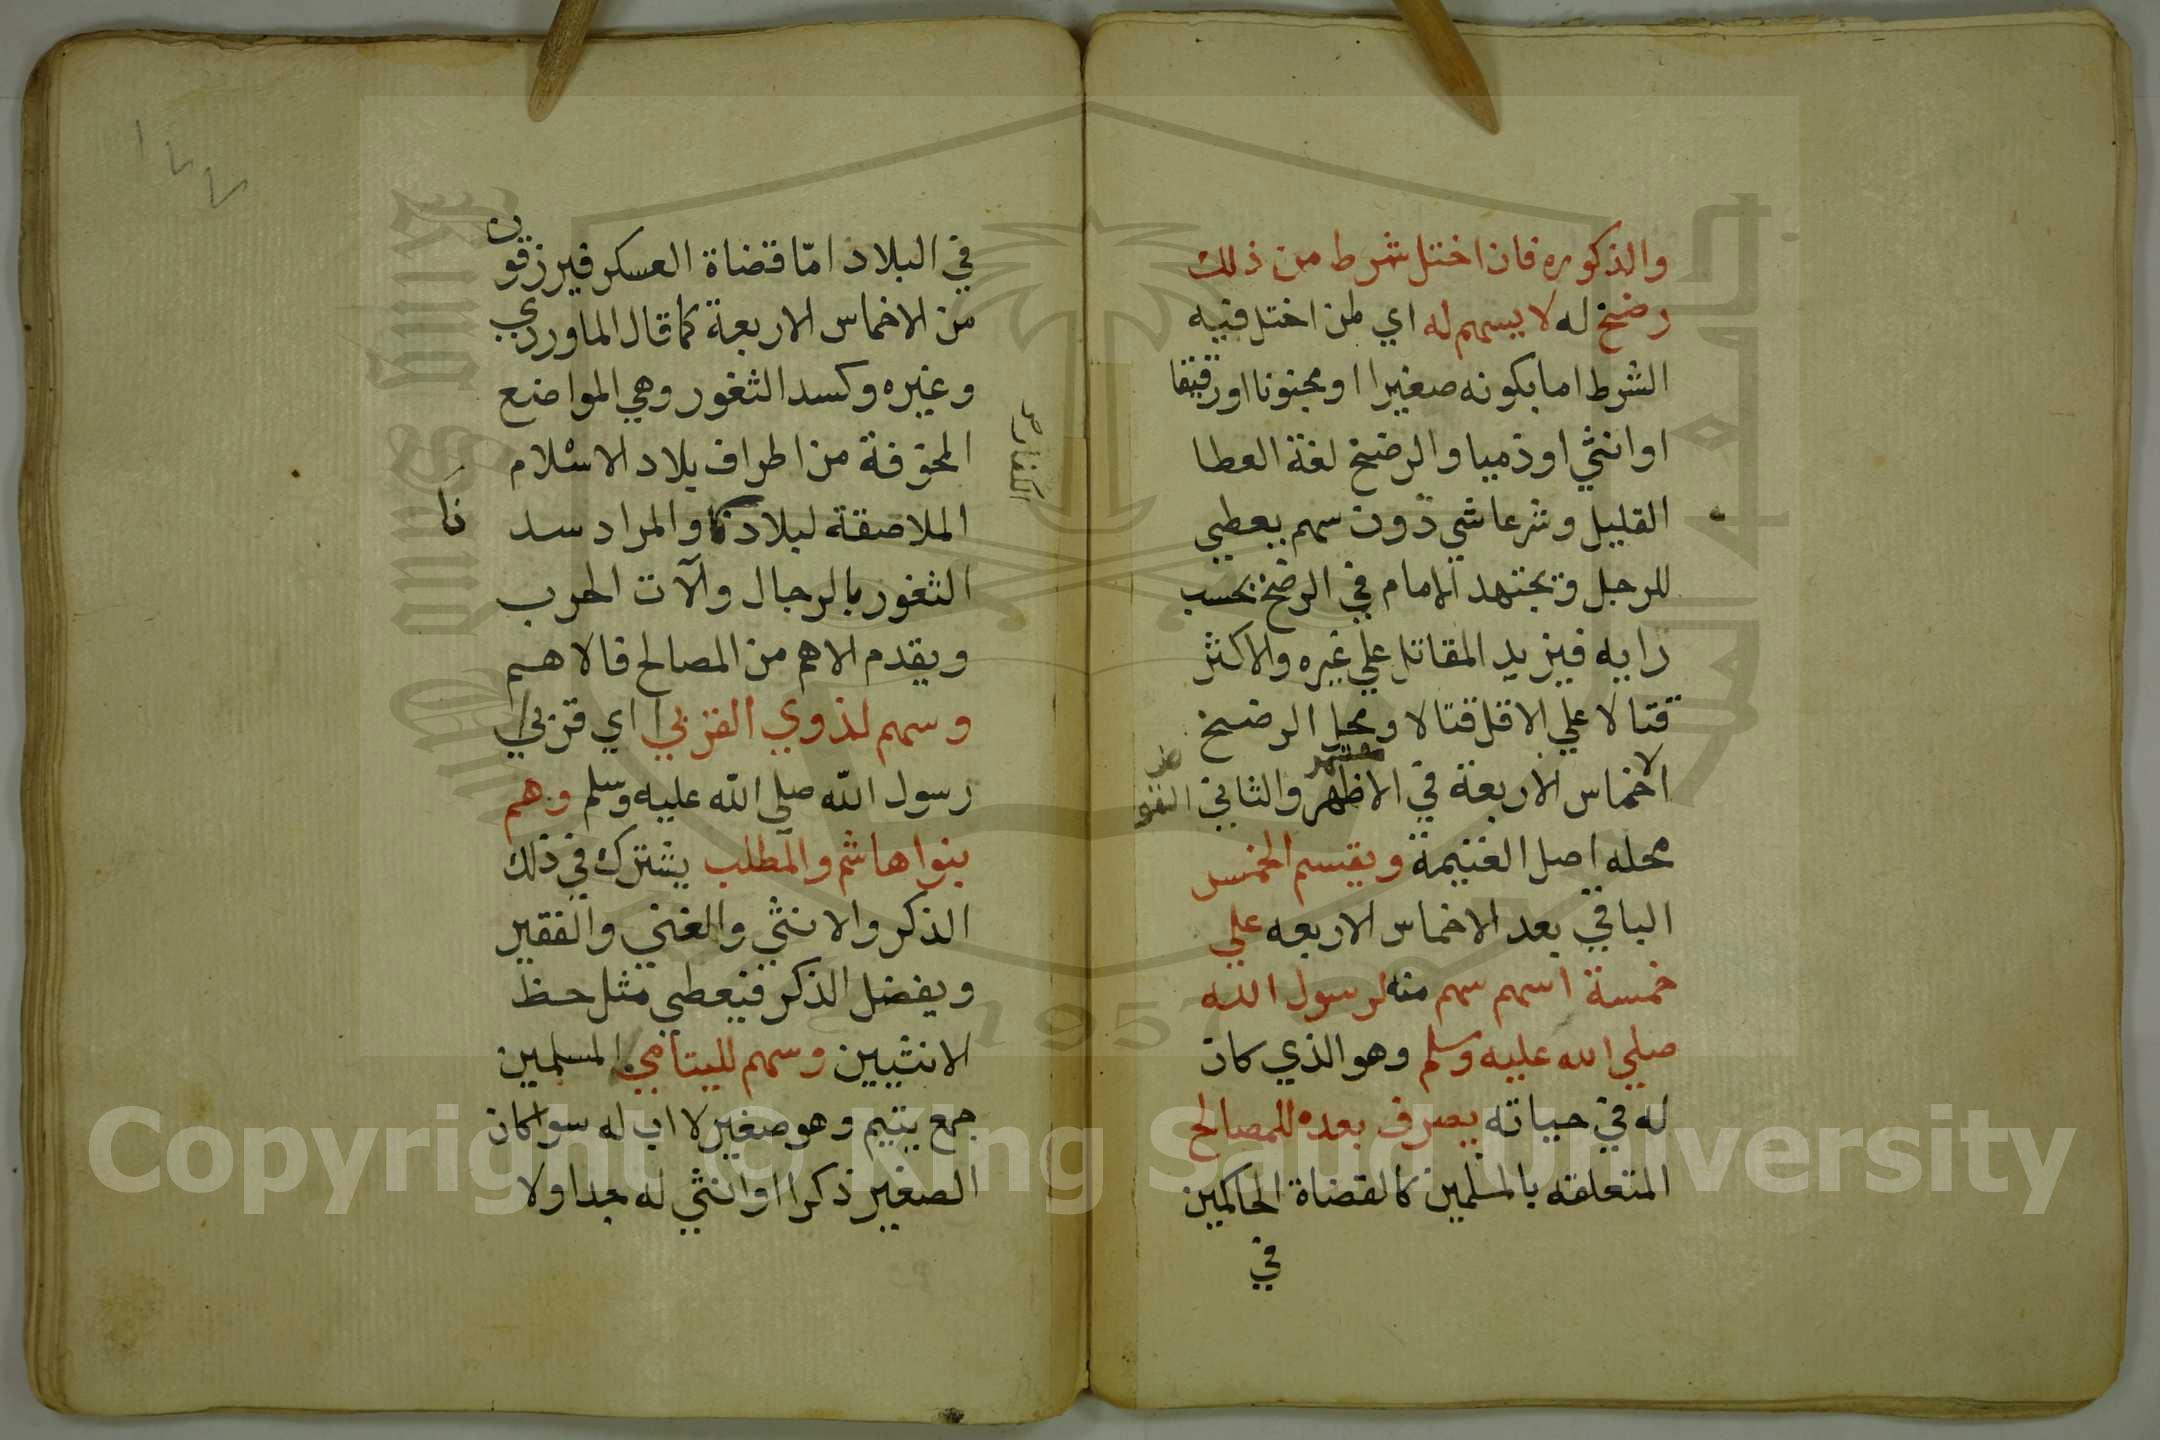 والذكوره فان اختل شرط من ذلك
رضخ له لا يسهم له اي لمن اختل فيه
الشرط اما بكونه صغيرا او مجنونا او رقيقا
او انثي او ذميا والرضخ لغة العطا
القليل وشرعا شي دون سهم يعطي
للرجل ويجتهد الامام في الرضخ بحسب
رايه فيزيد المقاتل علي غيره والاكثر
قتالا علي الاقل قتالا ومحل الرضخ
الاخماس الاربعة في الاظهر والثاني
محله اصل الغنيمة ويقسم الخمس
الباقي بعد الاخماس الاربعه علي
خمسة اسهم سهم منه لرسول الله
صلي الله عليه وسلم وهو الذي كان
له في حياته يصرف بعده للمصالح
المتعلقه بالمسلمين كالقضاة الحاكمين
في
١٧٧
في البلاد امّا قضاة العسكر فيرزقون
من الاخماس الاربعة كما قال الماوردي
وغيره وكسد الثغور وهي المواضع
المخوفة من اطراف بلاد الاسلام
الملاصقة لبلادنا والمراد سد
نا
الثغور بالرجال وآلات الحرب
ويقدم الاهم من المصالح فالاهم
وسهم لذوي القربي اي قربي
رسول الله صلي الله عليه وسلم وهم
بنوا هاشم والمطلب يشترك في ذلك
الذكر والانثي والغني والفقير
ويفضل الذكر فيعطي مثل حظ
الانثيين وسهم لليتامي المسلمين
جمع يتيم وهو صغير لا اب له سوا كان
الصغير ذكرا او انثي له جد اولا
Copyright © King Saud University
King Saud University
1957